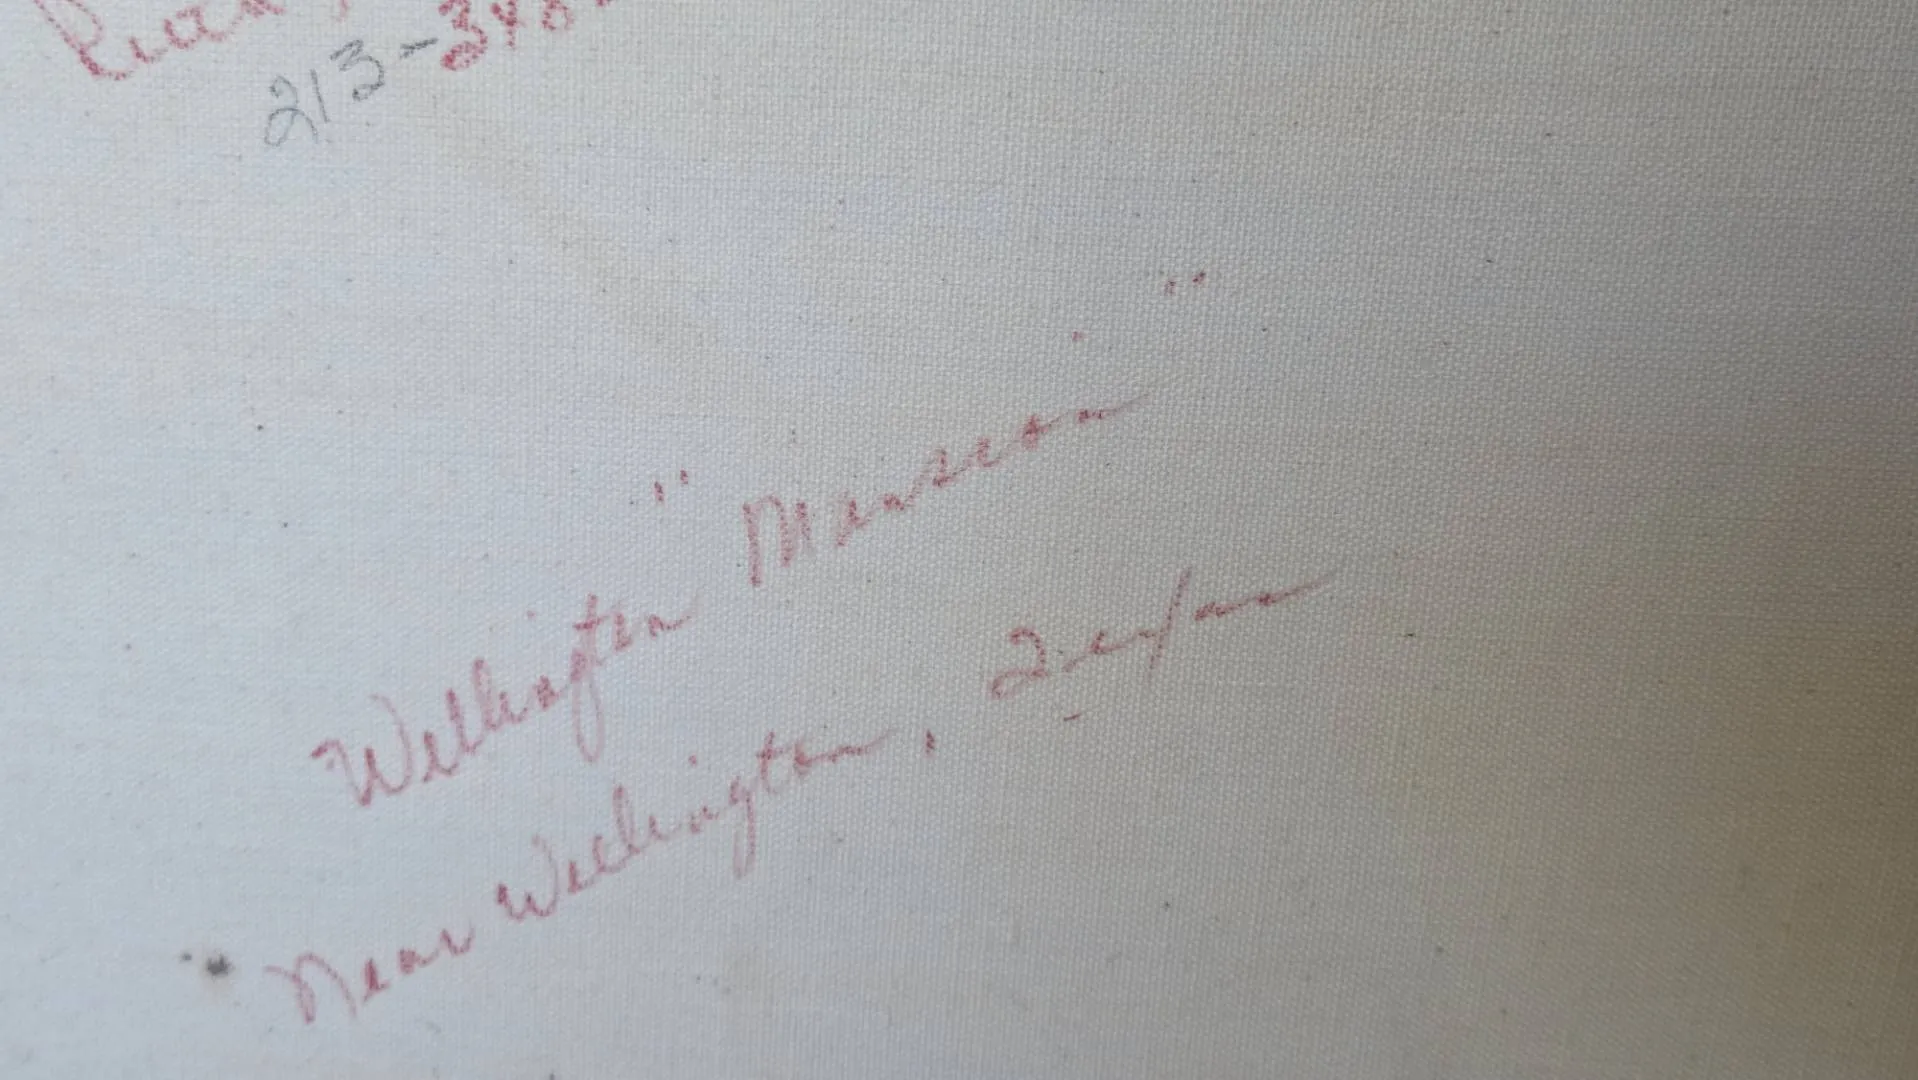 213-348
Wellington "Mansion"
Near Wellington, Texas